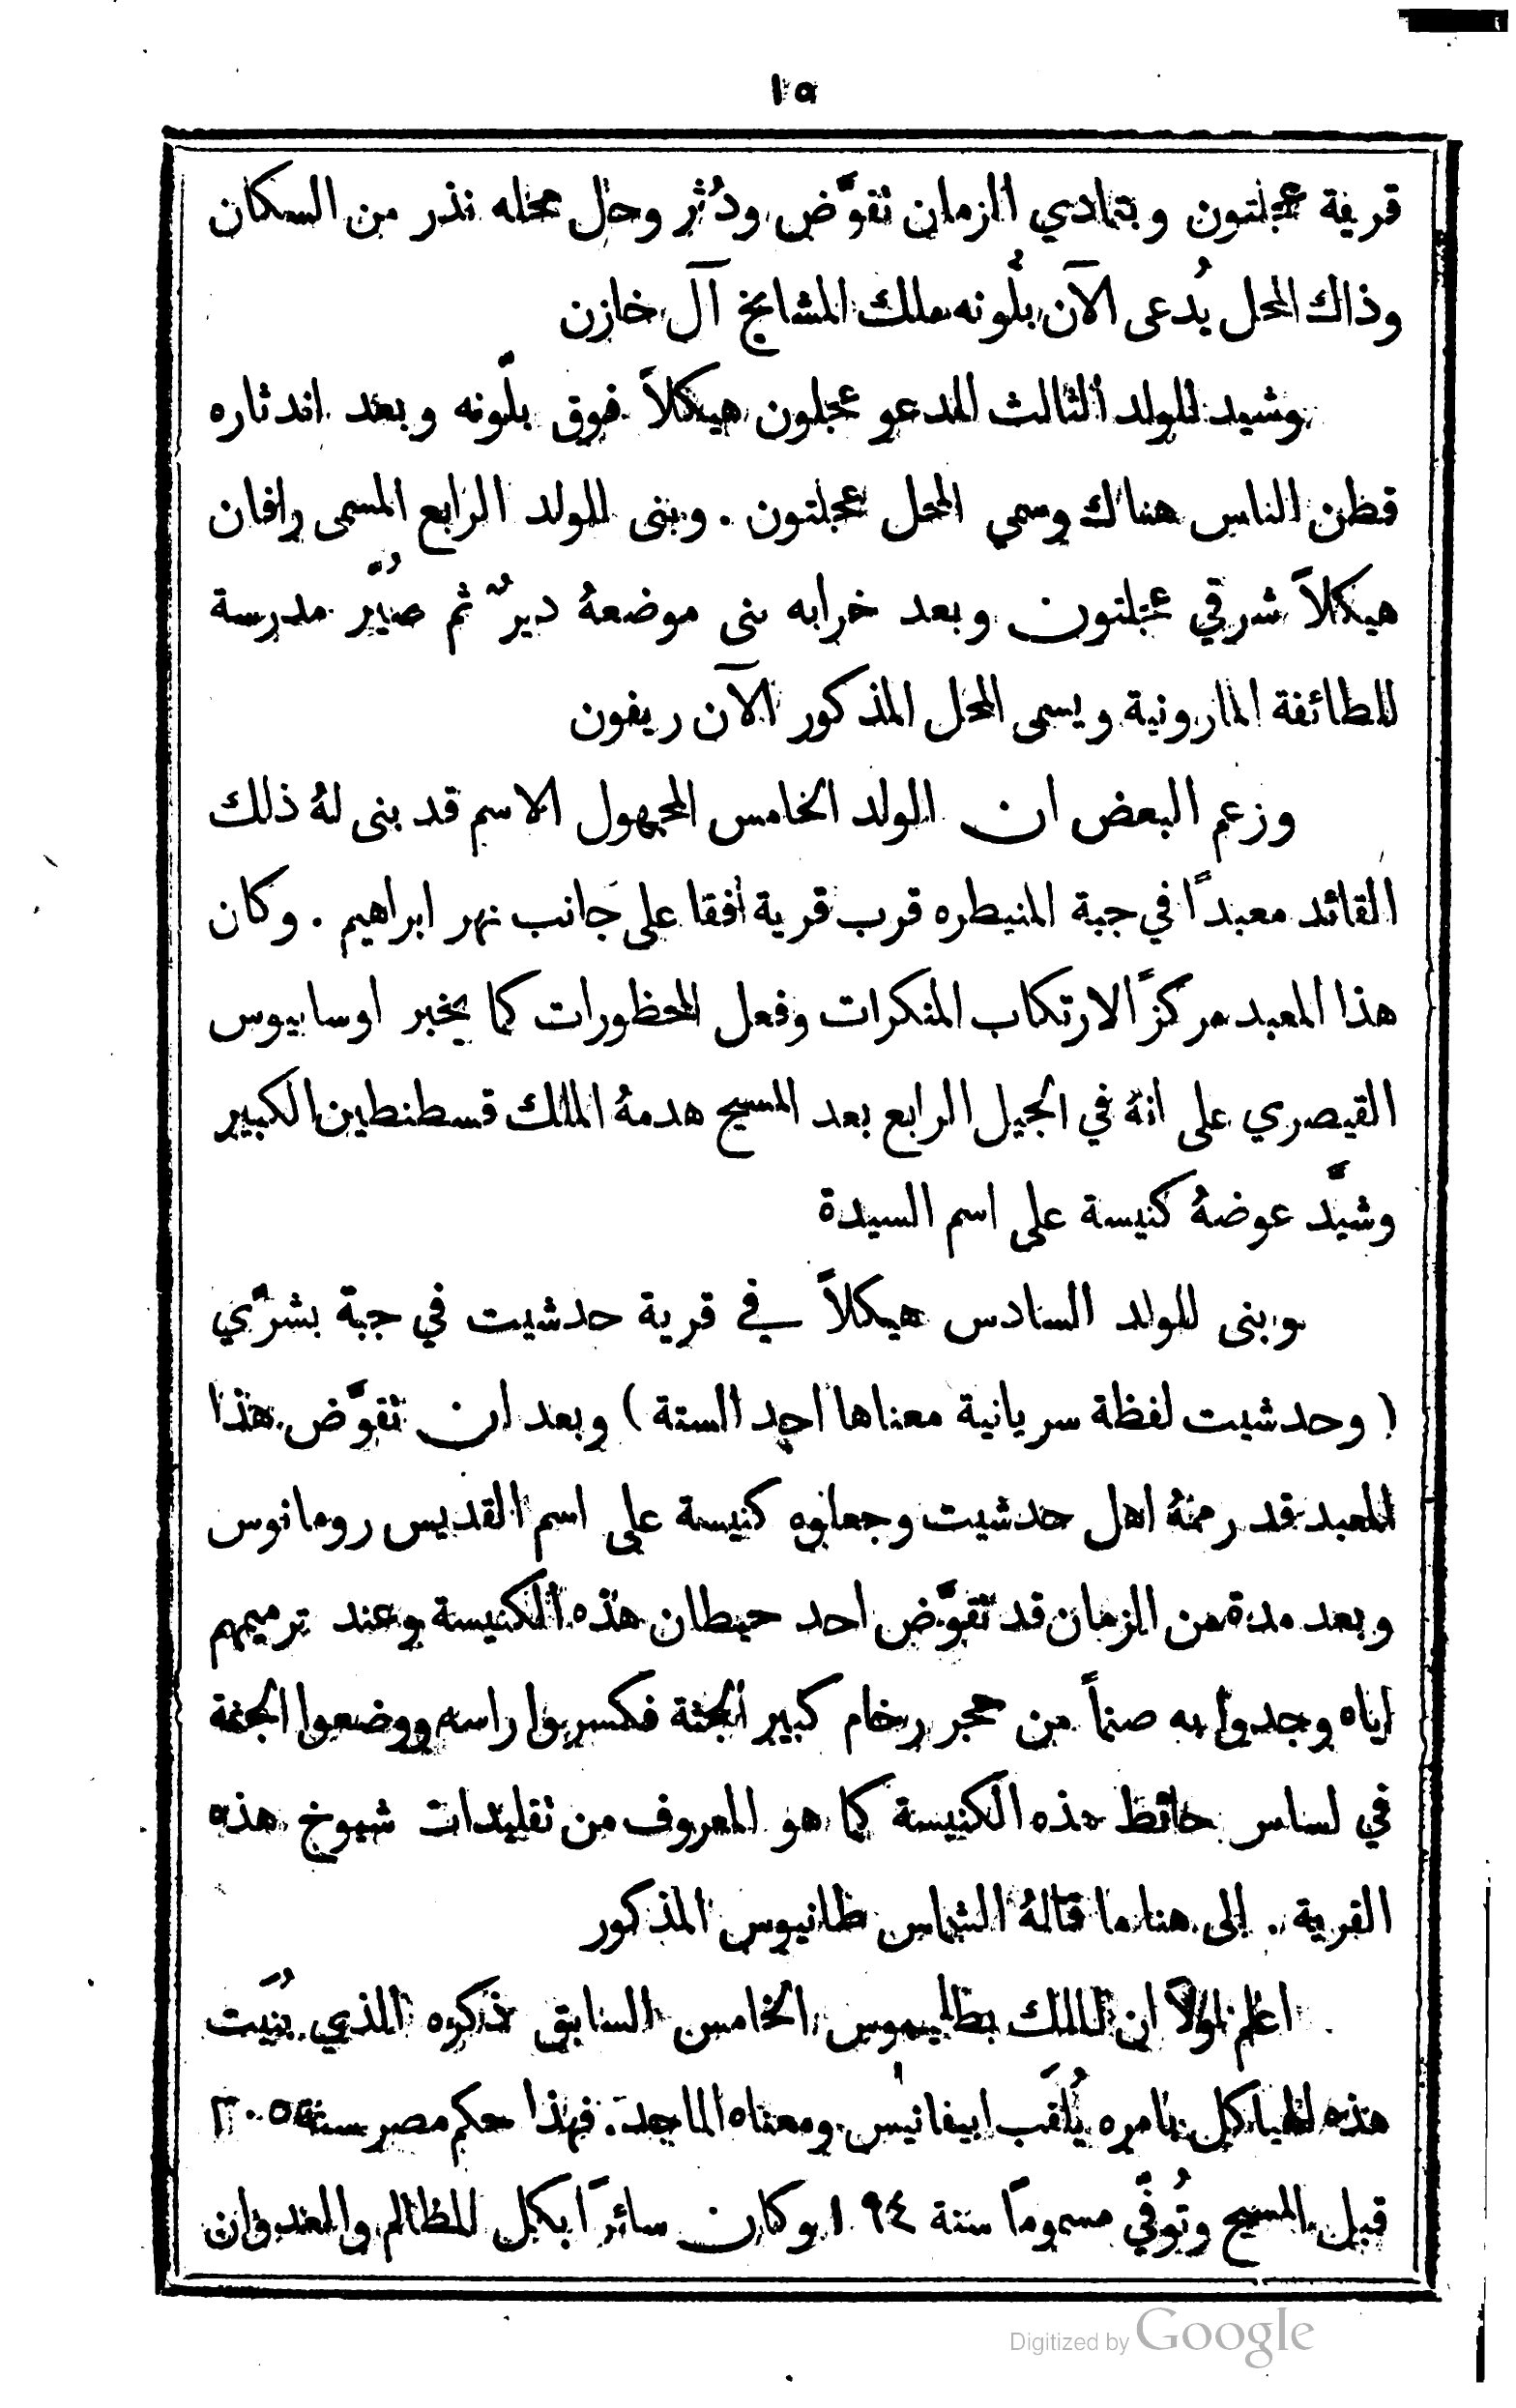 ١٥
قرية عجلتون وبتمادي الزمان تقوَّض ودُثر وحل محله نذر من السكان
وذاك المحل يُدعى الآن بلّونه ملك المشايخ آل خازن
وشيد للولد الثالث المدعو عجلون هيكلاً فوق بلّونه وبعد اندثاره
قطن الناس هناك وسمي المحل عجلتون . وبنى للولد الرابع المسمى رافان
هيكلاً شرقي عجلتون وبعد خرابه بنى موضعهُ ديرٌ ثم صُيِّر مدرسة
للطائفة المارونية ويسمى المحل المذكور الآن ريفون
وزعم البعض ان الولد الخامس المجهول الاسم قد بنى لهُ ذلك
القائد معبداً في جبة المنيطره قرب قرية افقا على جانب نهر ابراهيم . وكان
هذا المعبد مركزًا لارتكاب المنكرات وفعل المحظورات كما يخبر اوسابيوس
القيصري على انهُ في الجيل الرابع بعد المسيح هدمهُ الملك قسطنطين الكبير
وشيَّد عوضهُ كنيسة على اسم السيدة
وبنى للولد السادس هيكلاً في قرية حدشيت في جبة بشرّي
( وحدشيت لفظة سريانية معناها احد الستة ) وبعد ان تقوَّض هذا
المعبد قد رممهُ اهل حدشيت وجعلوه كنيسة على اسم القديس رومانوس
وبعد مدة من الزمان قد تقوَّض احد حيطان هذه الكنيسة وعند ترميمهم
اياه وجدوا به صنماً من حجر رخام كبير الجثة فكسروا راسه ووضعوا الجثة
في اساس حائط هذه الكنيسة كما هو المعروف من تقليدات شيوخ هذه
القرية . إلى هنا ما قالهُ الشماس طانيوس المذكور
اعلم اولاً ان الملك بطليموس الخامس السابق ذكره الذي بُنيَت
هذه الهياكل بامره يُلقَب ابيفانيس ومعناه الماجد . فهذا حكم مصر سنة ٢٠٥
قبل المسيح وتُوفّي مسمومًا سنة ١٩٤ وكان سائرًا بكل المظالم والعدوان
Digitized by Google